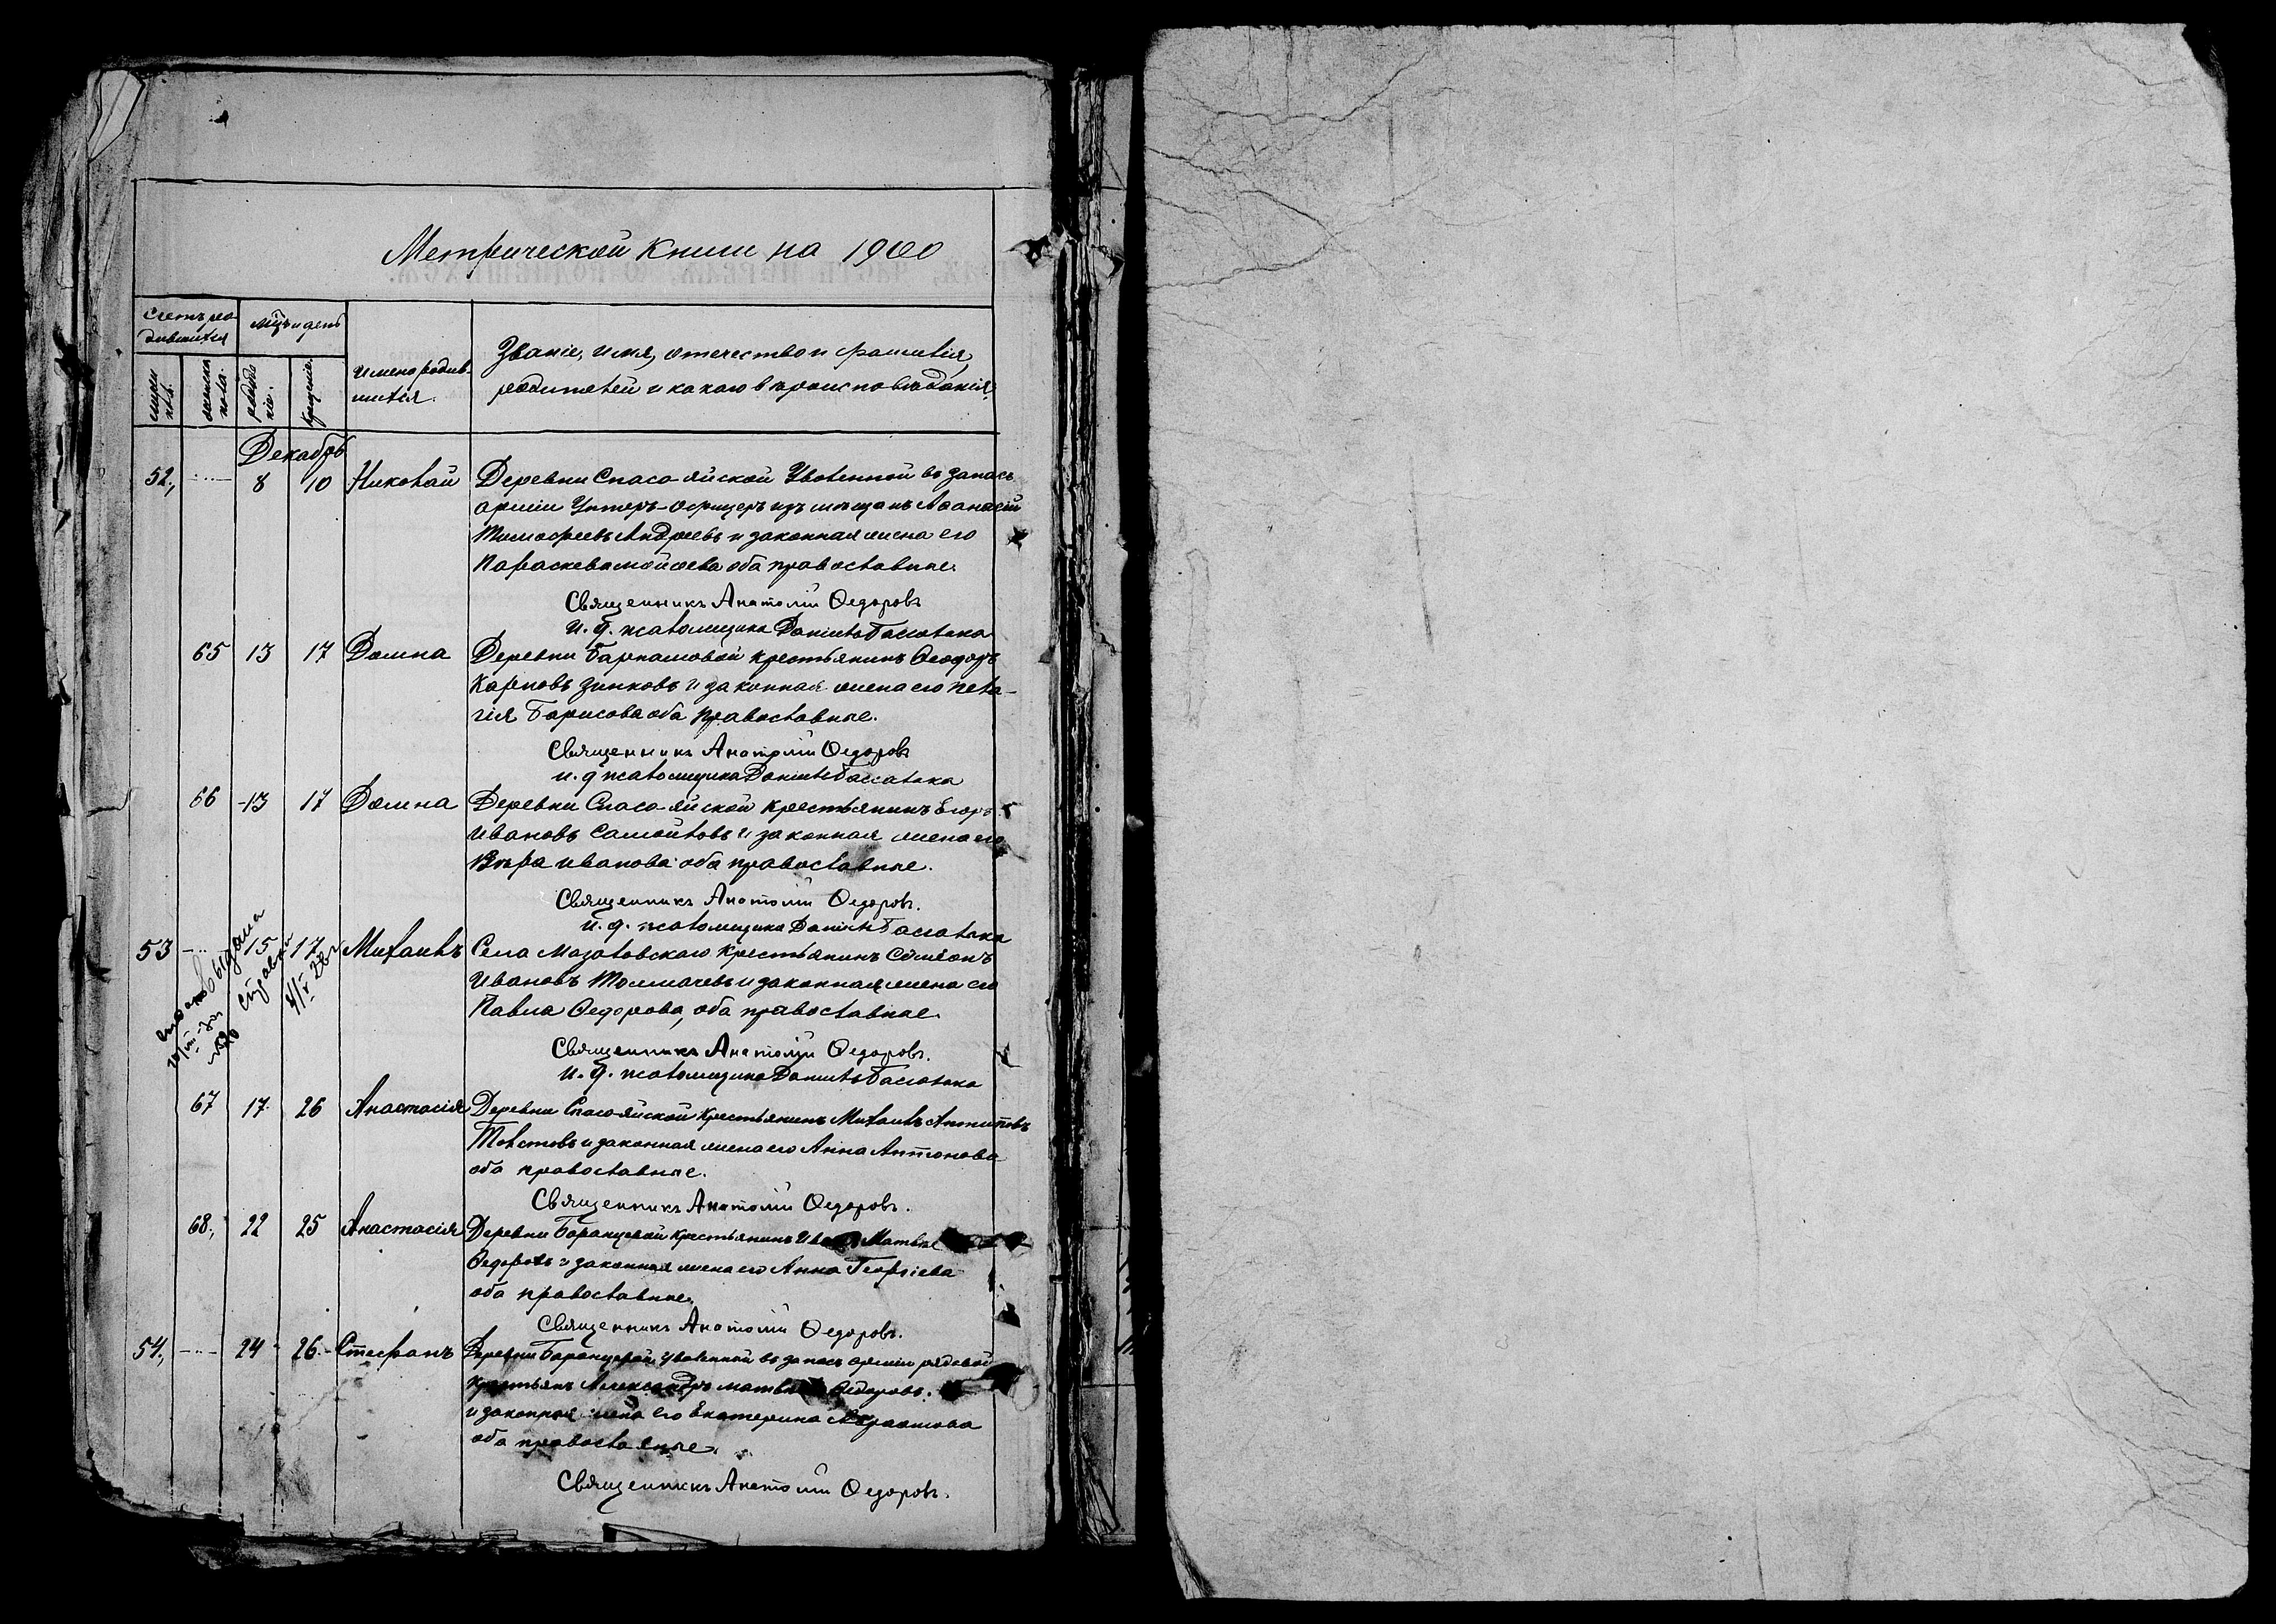 Метрической книги на 1900
Счетъ ро-
дившихся
Мѣц. и день
мужска
пола.
женска
пола.
рожде-
нія.
крещенія.
Имена родив-
шихся.
Званіе, имя, отечество и фамилія
родителей и какого вѣроисповѣданія.
Декабрь
52., 8 10 Николай Деревни Спасо-яйской Уволенной въ запасъ
арміи Унтеръ-офицеръ изъ мѣщанъ Аѳанасій
Тимофеевъ Андреевъ и законная жена его
Параскева Мойсеева оба православные.
Священникъ Анатолій Ѳедоровъ
И. д. псаломщика Даніилъ
65 13 17 Домна Деревни крестьянинъ Ѳеодоръ
Карповъ Зинковъ и законная жена его Пела-
гія Борисова оба православные.
Священникъ Анатолій Ѳедоровъ
и. д псаломщика Даніилъ
66 13 17 Домна Деревни Спасо-яйской крестьянинъ Егоръ
Ивановъ Самойловъ и законная жена его
Вѣра Иванова оба православные.
Священникъ Анатолій Ѳедоровъ.
и. д. псаломщика Даніилъ
53 15 17 Михаилъ Села Мазаловскаго крестьянинъ Симеонъ
Ивановъ Толмачевъ и законная жена его
Павла Ѳедорова, оба православные.
выдана
справка
Священникъ Анатолій Ѳедоровъ.
и. д. псаломщика Даніилъ
67 17 26 Анастасія Деревни Спасо-яйской крестьянинъ Михаилъ Антиповъ
Толстовъ и законная жена его Анна Антонова
оба православные.
Священникъ Анатолій Ѳедоровъ.
68., 22 25 Анастасія Деревни Баранцевой крестьянинъ
Ѳедоровъ и законная жена его Анна Георгіева
оба православные.
Священникъ Анатолій Ѳедоровъ.
54., 24 26 Стефанъ Деревни Баранцевой, Уволенной въ запасъ арміи рядовой
Александръ Ѳедоровъ.
и законная жена его Екатерина
оба православные.
Священникъ Анатолій Ѳедоровъ.